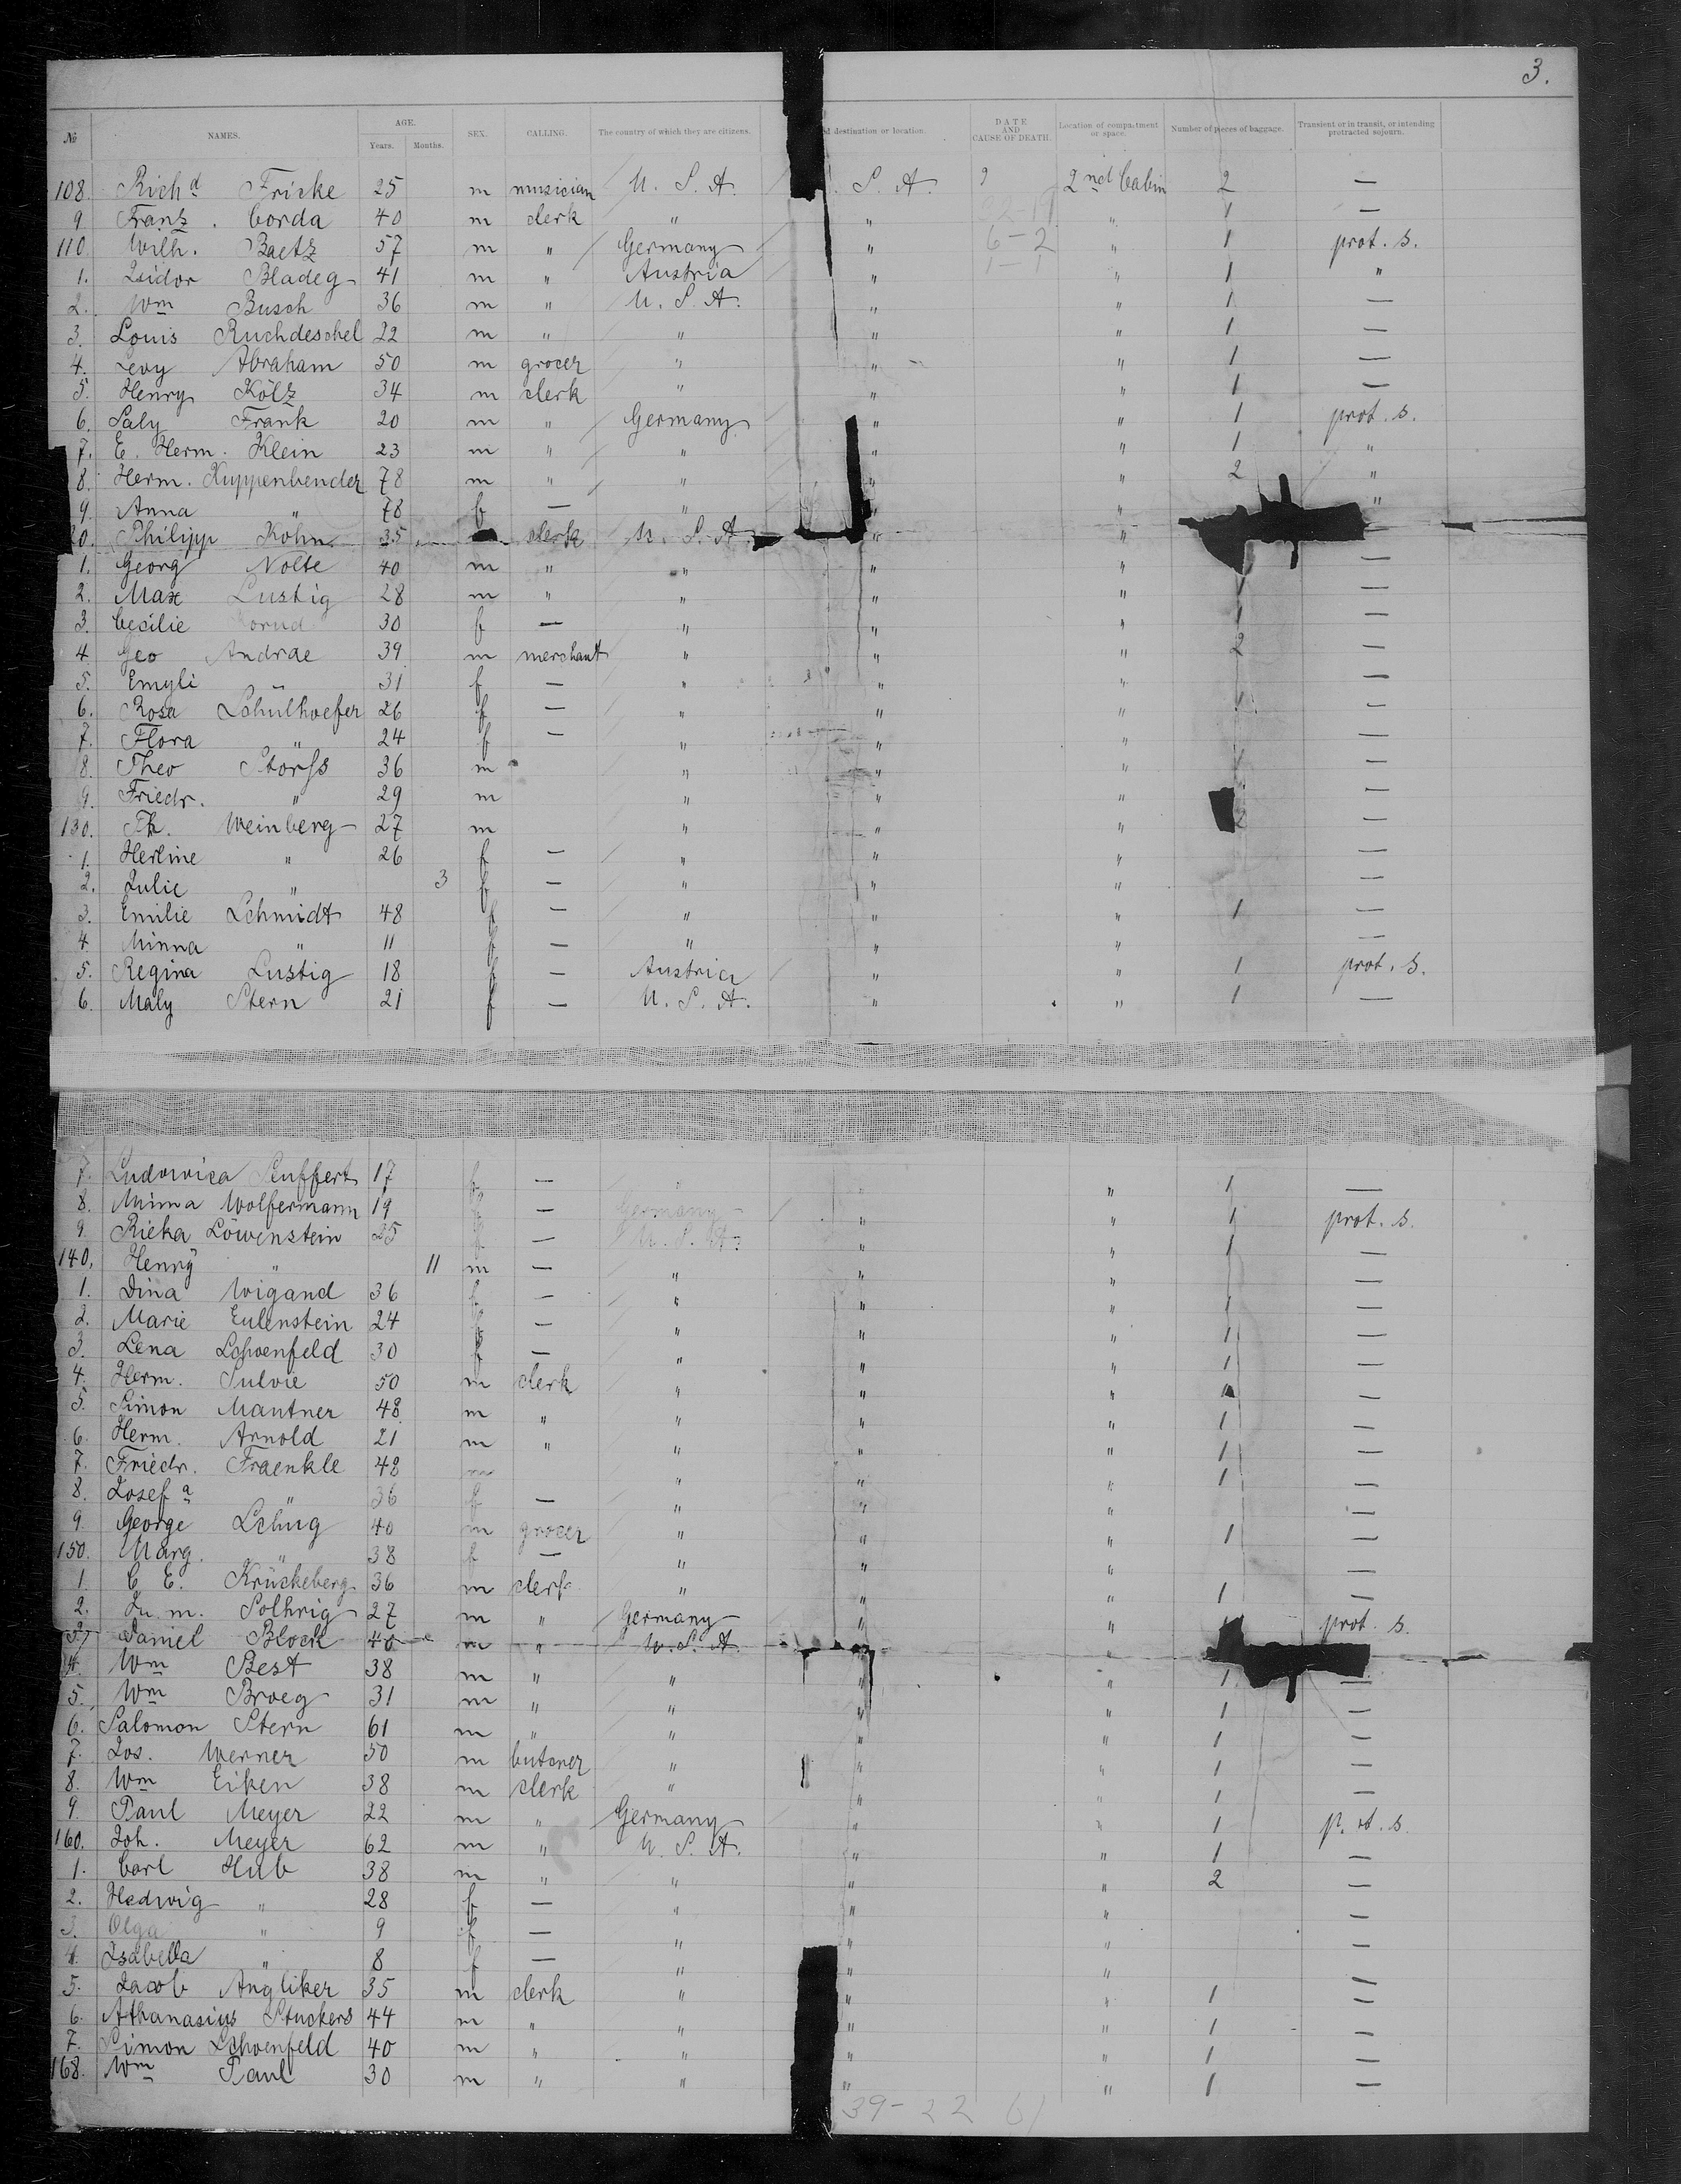 3.
№ NAMES. AGE. Years. Months. SEX. CALLING. The country of which they are citizens. d destination or location. DATE AND CAUSE OF DEATH. Location of compartment or space. Number of pieces of baggage. Transient or in transit, or intending protracted sojourn.
108. Richd Fricke 25 m musician U. S. A. S. A. 2nd Cabin 2 —
9 Franz. Corda 40 m clerk " " " 1 —
110. Wilh. Baetz 57 m " Germany " 6-2 " 1 prot. s.
1. Isidor Bladeg 41 m " Austria " 1-1 " 1 "
2. Wm Busch 36 m " U. S. A. " " 1 —
3. Louis Ruchdeschel 22 m " " " " 1 —
4. Levy Abraham 50 m grocer " " " 1 —
5. Henry Kölz 34 m clerk " " " 1 —
6. Saly Frank 20 m " Germany " " 1 prot. s.
7. E. Herm. Klein 23 m " " " " 1 "
8. Herm. Kuppenbender 78 m " " " " 2 "
9. Anna " 78 f — " " " "
20. Philipp Kohn 35 clerk U. S. A. " "
1. Georg Nolte 40 m " " " " —
2. Max Lustig 28 m " " " " 1 —
3. Cecilie 30 f — " " " 1 —
4 Geo Andrae 39 m merchant " " " 2 —
5. Emyli " 31 f — " " " —
6. Rosa Schulhoefer 26 f — " " " 1 —
7. Flora " 24 f — " " " —
8. Theo Storfs 36 m " " " 1 —
9. Friedr. " 29 m " " " —
130. Th. Weinberg 27 m " " " 2 —
1. Herline " 26 f — " " " —
2. Julie " 3 f — " " " —
3. Emilie Schmidt 48 f — " " " 1 —
4. Minna " 11 f — " " " —
5. Regina Lustig 18 f — Austria " " 1 prot. s.
6. Maly Stern 21 f — U. S. A. " " 1 —
7. Ludowica Seuffert 17 f — " " " 1 —
8. Minna Wolfermann 19 f — Germany " " 1 prot. s.
9. Rieka Löwenstein 25 f — U. S. A. " " 1 —
140. Henry " 11 m — " " " —
1. Dina Wigand 36 f — " " " 1 —
2. Marie Eulenstein 24 f — " " " 1 —
3. Lena Schoenfeld 30 f — " " " 1 —
4. Herm. Sulvie 50 m clerk " " " 1 —
5. Simon Mautner 48 m " " " " 1 —
6. Herm. Arnold 21 m " " " " 1 —
7. Friedr. Fraenkle 42 m " " " 1 —
8. Josefa " 36 f — " " " —
9. George Schug 40 m grocer " " " 1 —
150. Marg. " 38 f — " " " —
1. C. E. Krückeberg 36 m clerk " " " 1 —
2. Ju. m. Solbrig 27 m " Germany " " prot. s.
3. Daniel Block 40 m " U. S. A. " "
4. Wm Best 38 m " " " " 1 —
5. Wm Broeg 31 m " " " " 1 —
6. Salomon Stern 61 m " " " " 1 —
7. Jos. Werner 50 m butcher " " " 1 —
8. Wm Eiken 38 m clerk " " " 1 —
9. Paul Meyer 22 m " Germany " " 1 prot. s.
160. Joh. Meyer 62 m " U. S. A. " " 1 —
1. Carl Hub 38 m " " " " 2 —
2. Hedwig " 28 f — " " " —
3. Olga " 9 f — " " " —
4. Isabella " 8 f — " " " —
5. Jacob Angliker 35 m clerk " " " 1 —
6. Athanasius Stuckers 44 m " " " " 1 —
7. Simon Schoenfeld 40 m " " " " 1 —
168. Wm Paul 30 m " " " " 1 —
39-22 61